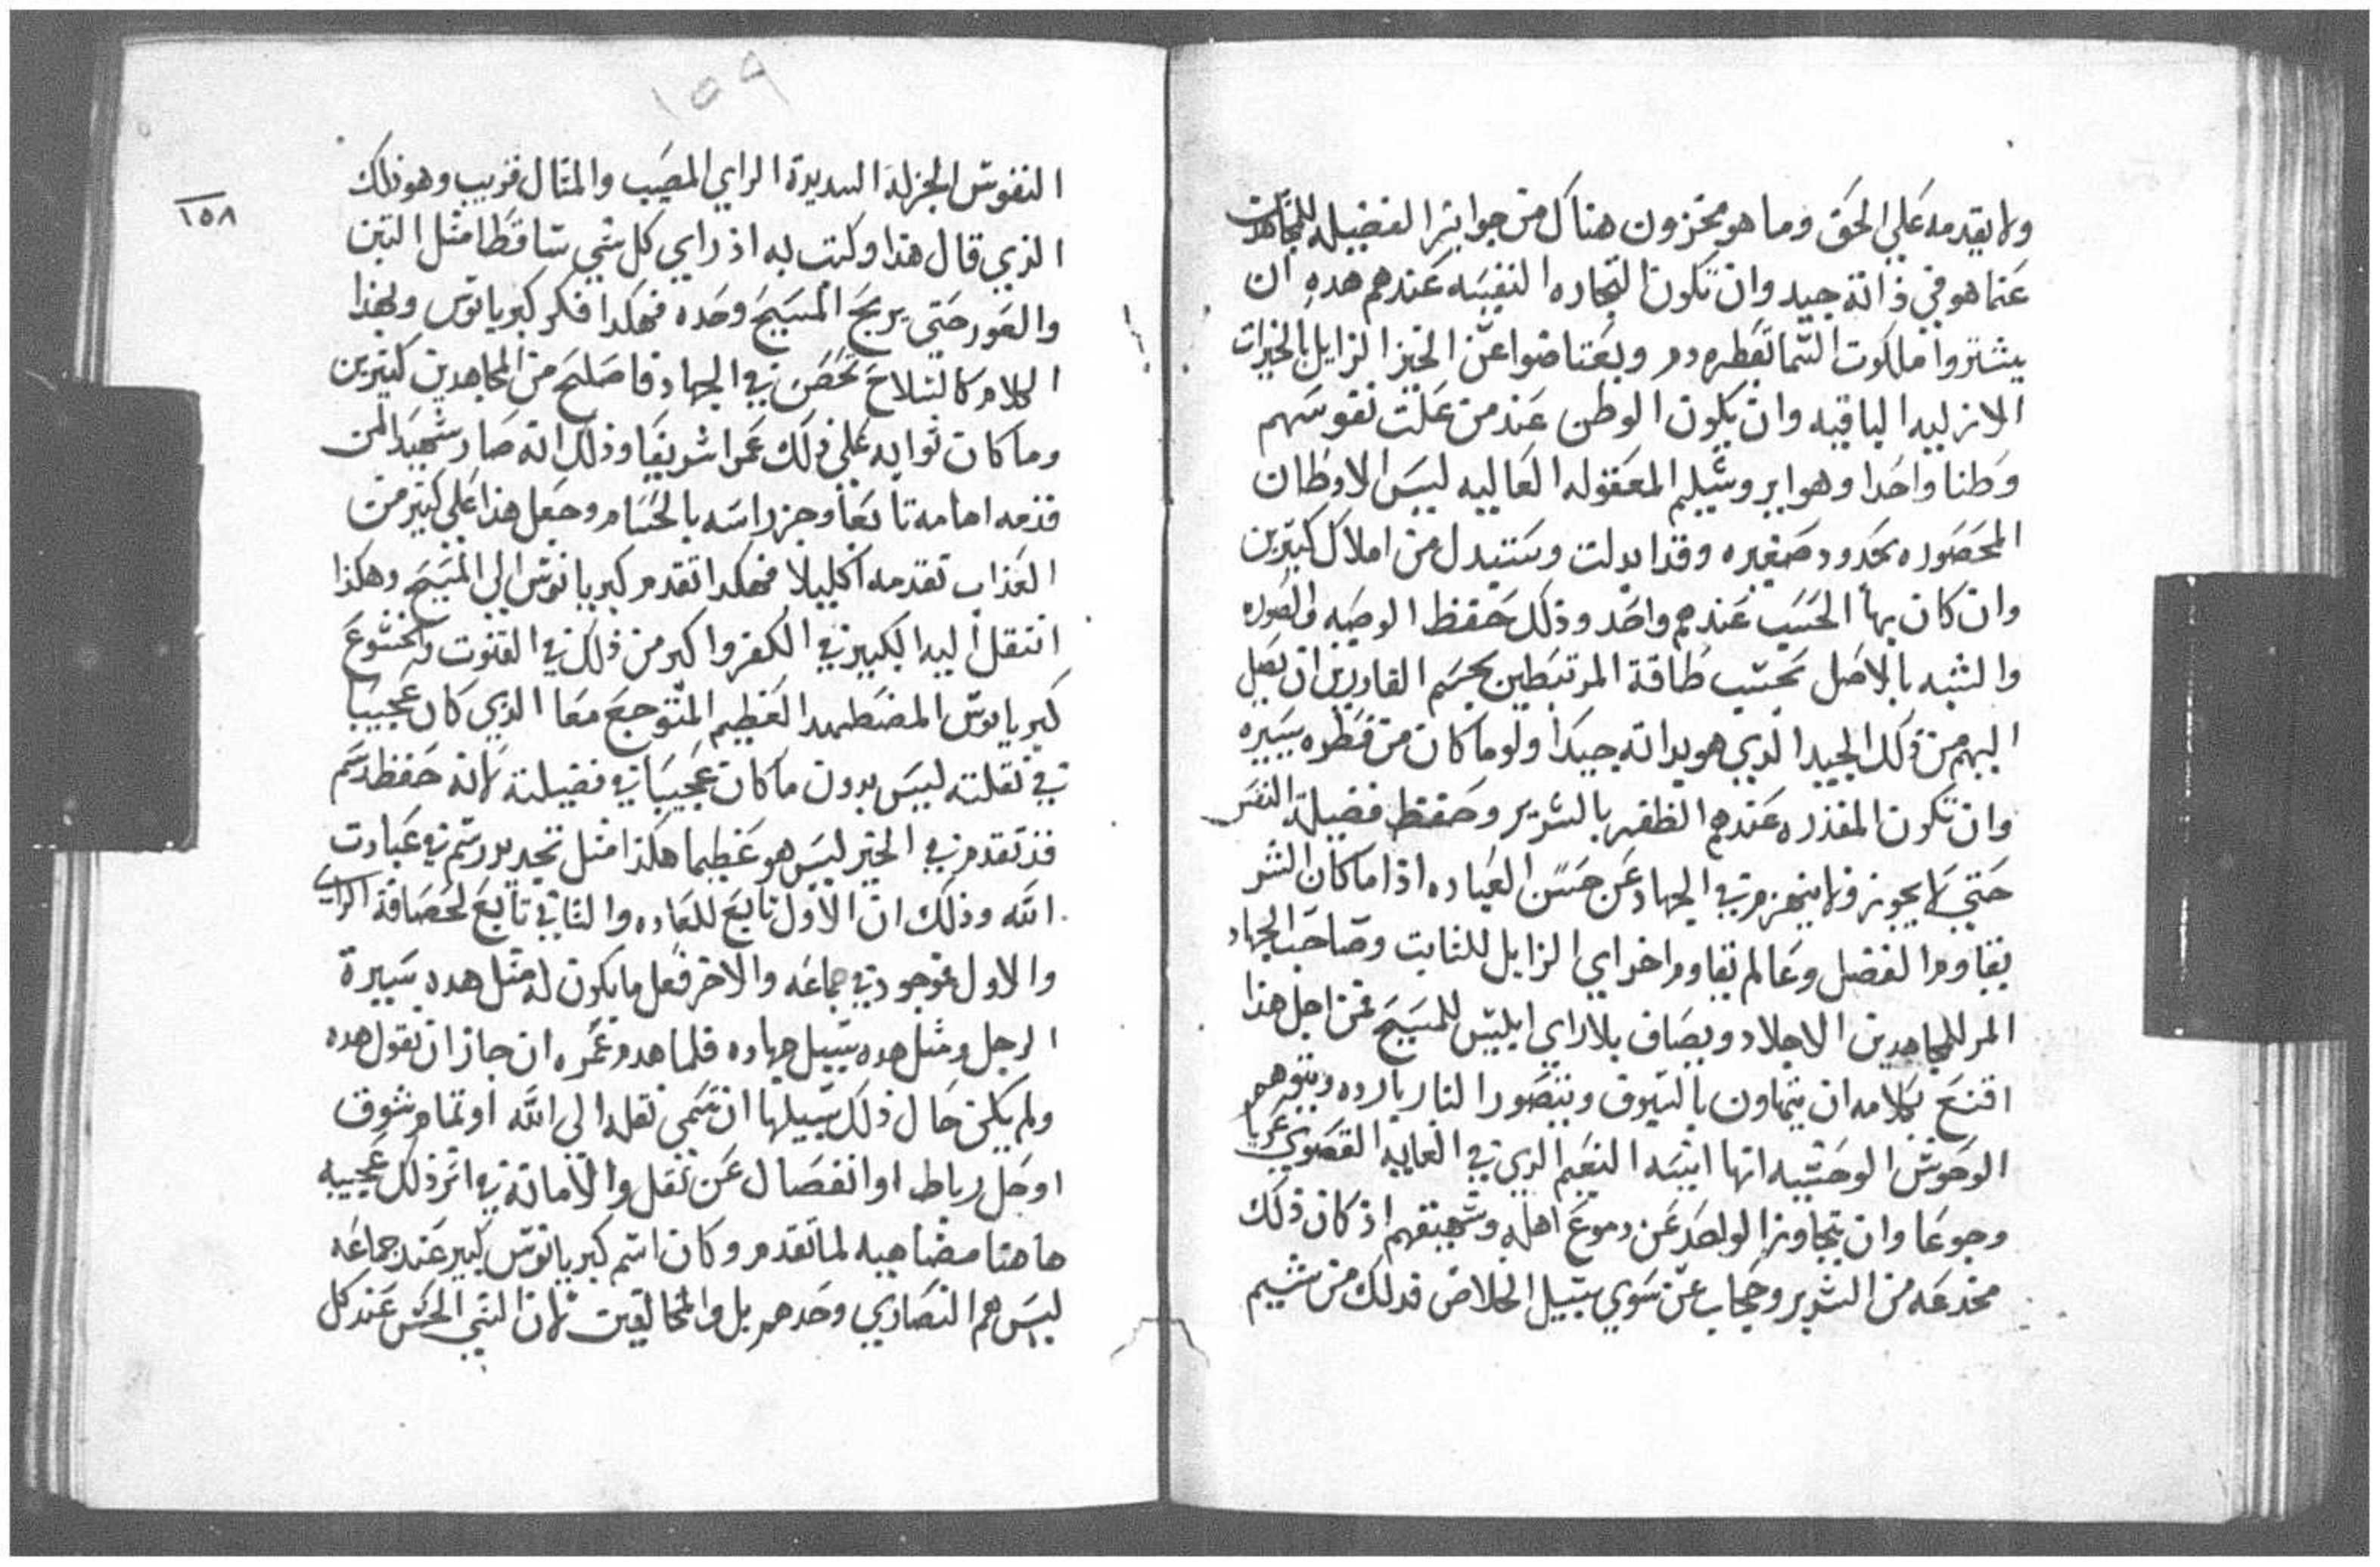 ولا يقدمه علي الحق وما هو مخزون هناك من جوايز الفضيله للمجاهدين
عنما هو في ذاته جيد وان تكون التجاره النفيسه عندهم هده ان
يشتروا ملكوت السما بقطره دم ويعتاضوا عن الخيز الزايل بالخيرات
الازليه الباقيه وان يكون الوطن عند من علت نفوسهم
وطنا واحدا وهو ايروشليم المعقوله العاليه ليس الاوطان
المحصوره بحدود صغيره وقد ابدلت وستبدل من املاك كتيرين
وان كان بها الحسب عندهم واحد وذلك حفظ الوصيه والصوره
والشبه بالاصل بحسب طاقة المرتبطين بجسم القادرين ان يصل
اليهم من ذلك الجيد الذي هو بداته جيدا ولو ما كان من قطره يسيره
وان تكون المقدره عندهم الظفر بالشرير وحفظ فضيلة النفس
حتي لا يجوز ولا ينهزم في الجهاد عن حسن العباده اذا ما كان الشر
يقاوم الفضل وعالم يقاوم اخر اي الزايل للثابت وصاحب الجهاد
المر للمجاهدين الاجلاد ويصاف بلاراي ابليس للمسيح فمن اجل هذا
اقنع بكلامه ان يتهاون بالسيوف ويتصور النار بارده ويتوهم
الوحوش الوحشيه انها انيسه النعيم الذي في الغايه القصوي عريا
وجوعا وان يتجاوز الواحد عن دموع اهله وشهيقهم اذ كان ذلك
مخدعه من الشرير وحجاب عن سوي سبيل الخلاص فدلك من شيم
١٥٩
١٥٨
النفوس الجزله السديدة الراي المصيب والمتال قريب وهو ذلك
الذي قال هذا وكتب به اذ راي كل شي ساقطا مثل التبن
والعور حتي يربح المسيح وحده فهكدا فكر كبريانوس وبهذا
الكلام كالسلاح تحصن في الجهاد فاصلح من المجاهدين كتيرين
وما كان ثوابه علي ذلك عمرا شريفا وذلك انه صار شهيدا لمن
قدمه امامه تابعا وجز راسه بالحسام وجعل هذا علي كتير من
العذاب تقدمه اكليلا فهكدا تقدم كبريانوس الي المسيح وهكذا
انتقل اليه الكبير في الكفر واكبر من ذلك في القنوت والخشوع
كبريانوس المضطهد العظيم المتوجع معا الذي كان عجيبا
في نقلته ليس بدون ما كان عجيبا في فضيلته لانه حفظ رسم
قد تقدم في الخير ليس هو عظيما هكذا مثل تجديد رسم في عبادت
الله وذلك ان الاول تابع للعاده والثاني تابع لحصافة الراي
والاول موجود في جماعه والاخر فعل ما يكون له مثل هده سيرة
الرجل ومثل هده سبيل جهاده فلما هدم عمره ان جاز ان نقول هده
ولم يكن حال ذلك سبيلها ان تسمي نقله الي الله او تمام شوق
او حل رباط او انفصال عن ثقل والامانة في اثر ذلك عجيبه
هاهنا مضاهيه لما تقدم وكان اسم كبريانوس كبير عند جماعه
ليس هم النصاري وحدهم بل والمخالفين لان الشي الحسن عند كل